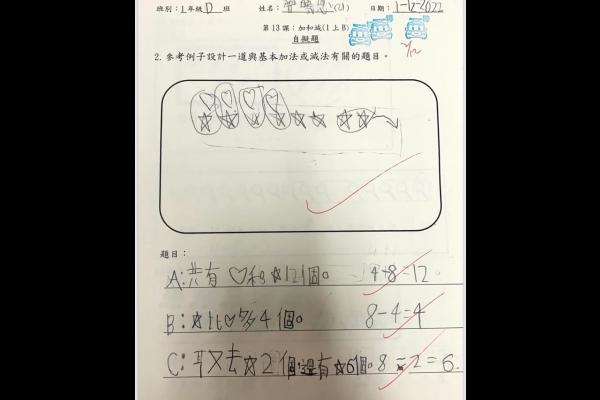 班別：1年級D班 姓名：(21) 日期：1-12-2022
第13課：加和減(1上B)
自擬題
2. 參考例子設計一道與基本加法或減法有關的題目。
題目：
A:共有♡和☆12個。 4+8=12
B:☆比♡多4個。 8-4=4
C:取去☆2個,還有☆6個。8-2=6.